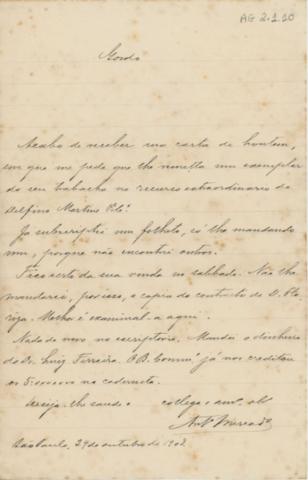 AG 2.1.10
Gordo
Acabo de receber sua carta de hontem,
em que me pede que lhe remetta um exemplar
do seu trabalho no recurso extraordinario de
Delfino Martins
Ja subscriptei um folheto, só lhe mandando
um, porque não encontrei outros.
Fico certo da sua vinda no sabbado. Não lhe
mandarei, por isso, a copia do contracto de D.
Melhor é examinal-a aqui.
Nada de novo no escriptorio. Mandei o dinheiro
do Dr. Luiz Ferreira. O B. Comm.^l já nos creditou
os na caderneta.
Deseja-lhe saude o collega e am.^o
São Paulo, 29 de outubro de 1902.